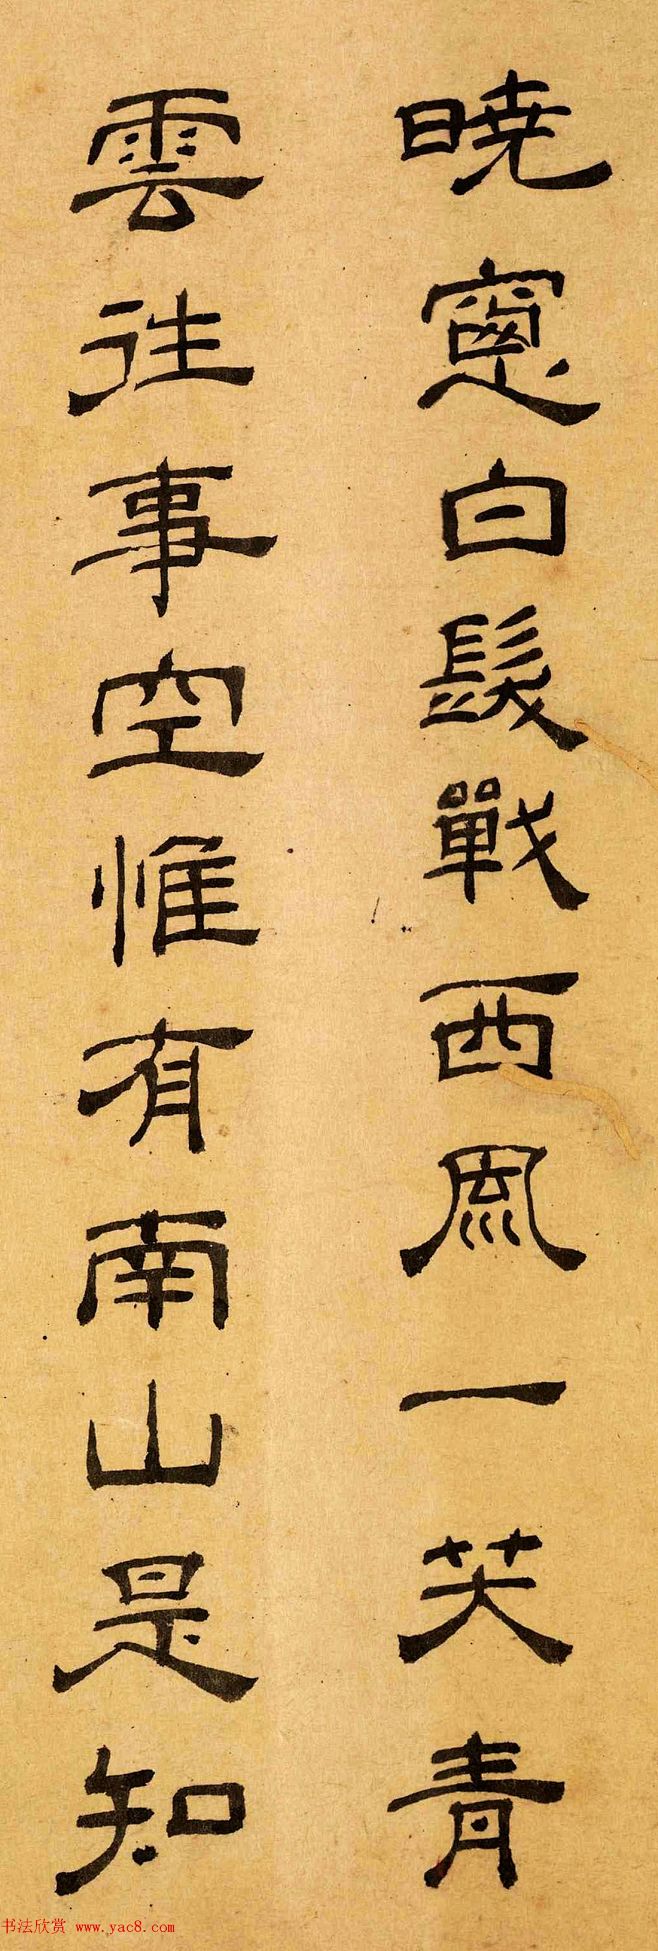 曉窻白髮戰西風一笑青
雲往事空惟有南山是知
书法欣赏 www.yac8.com